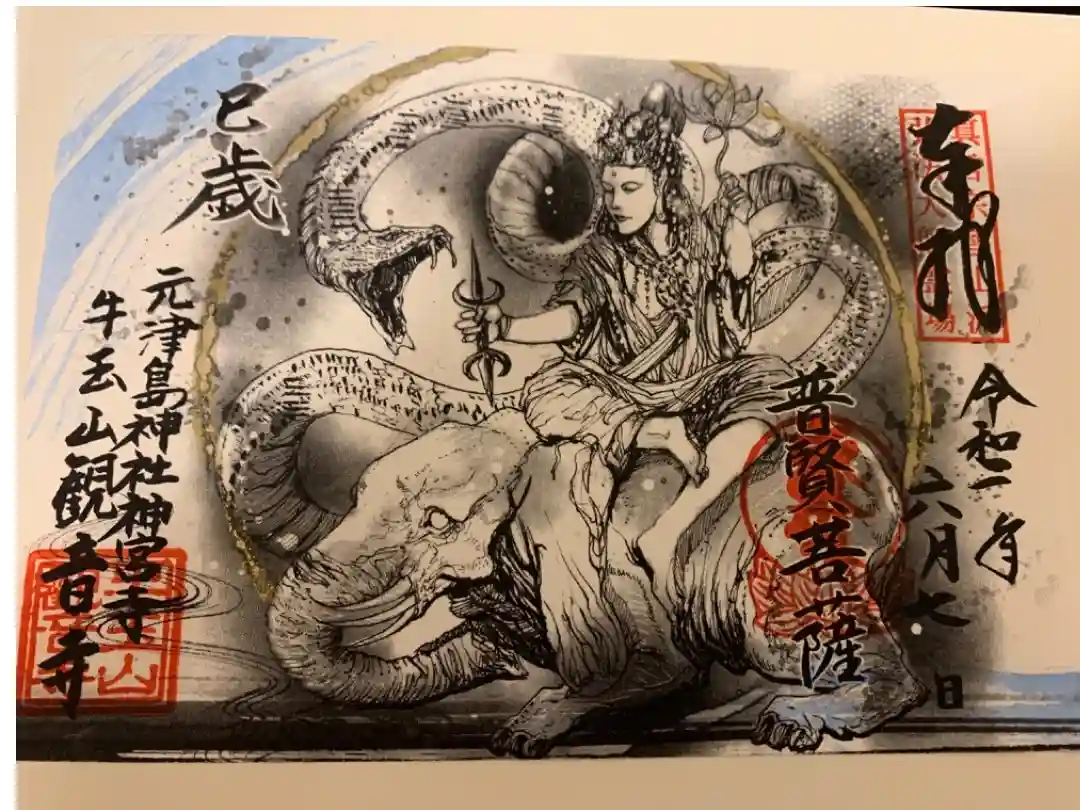 奉拝
令和二年
六月七日
普賢菩薩
巳歳
元津島神社神宮寺
牛玉山観音寺